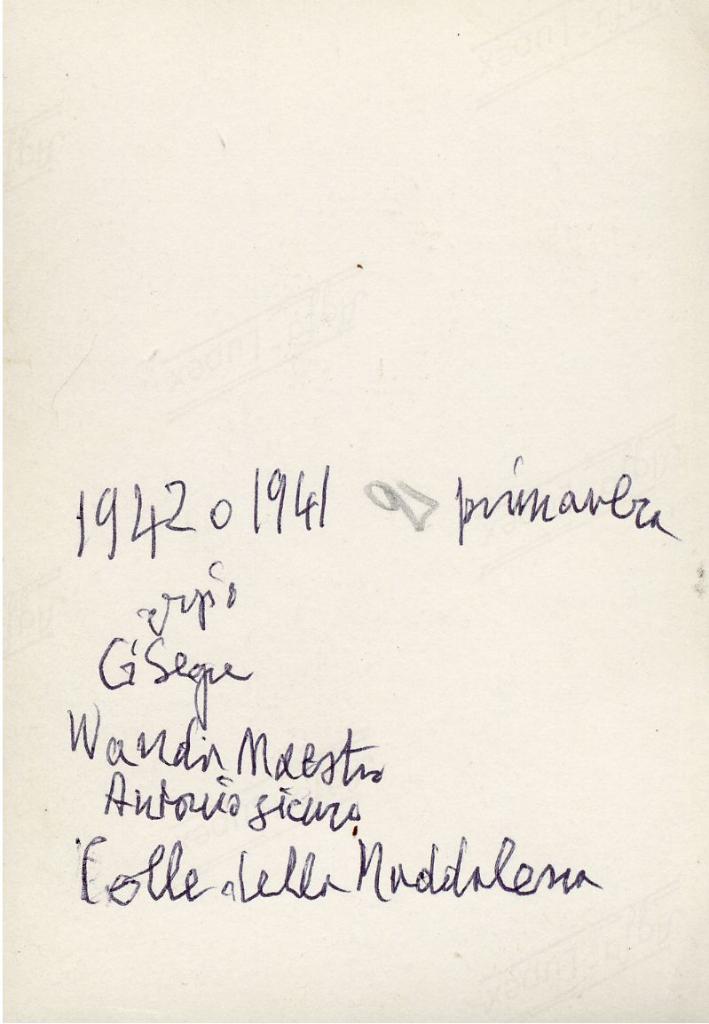 1942 o 1941 primavera
G Segre
Wanda Maestro
Antonio sicuro
Colle della Maddalena